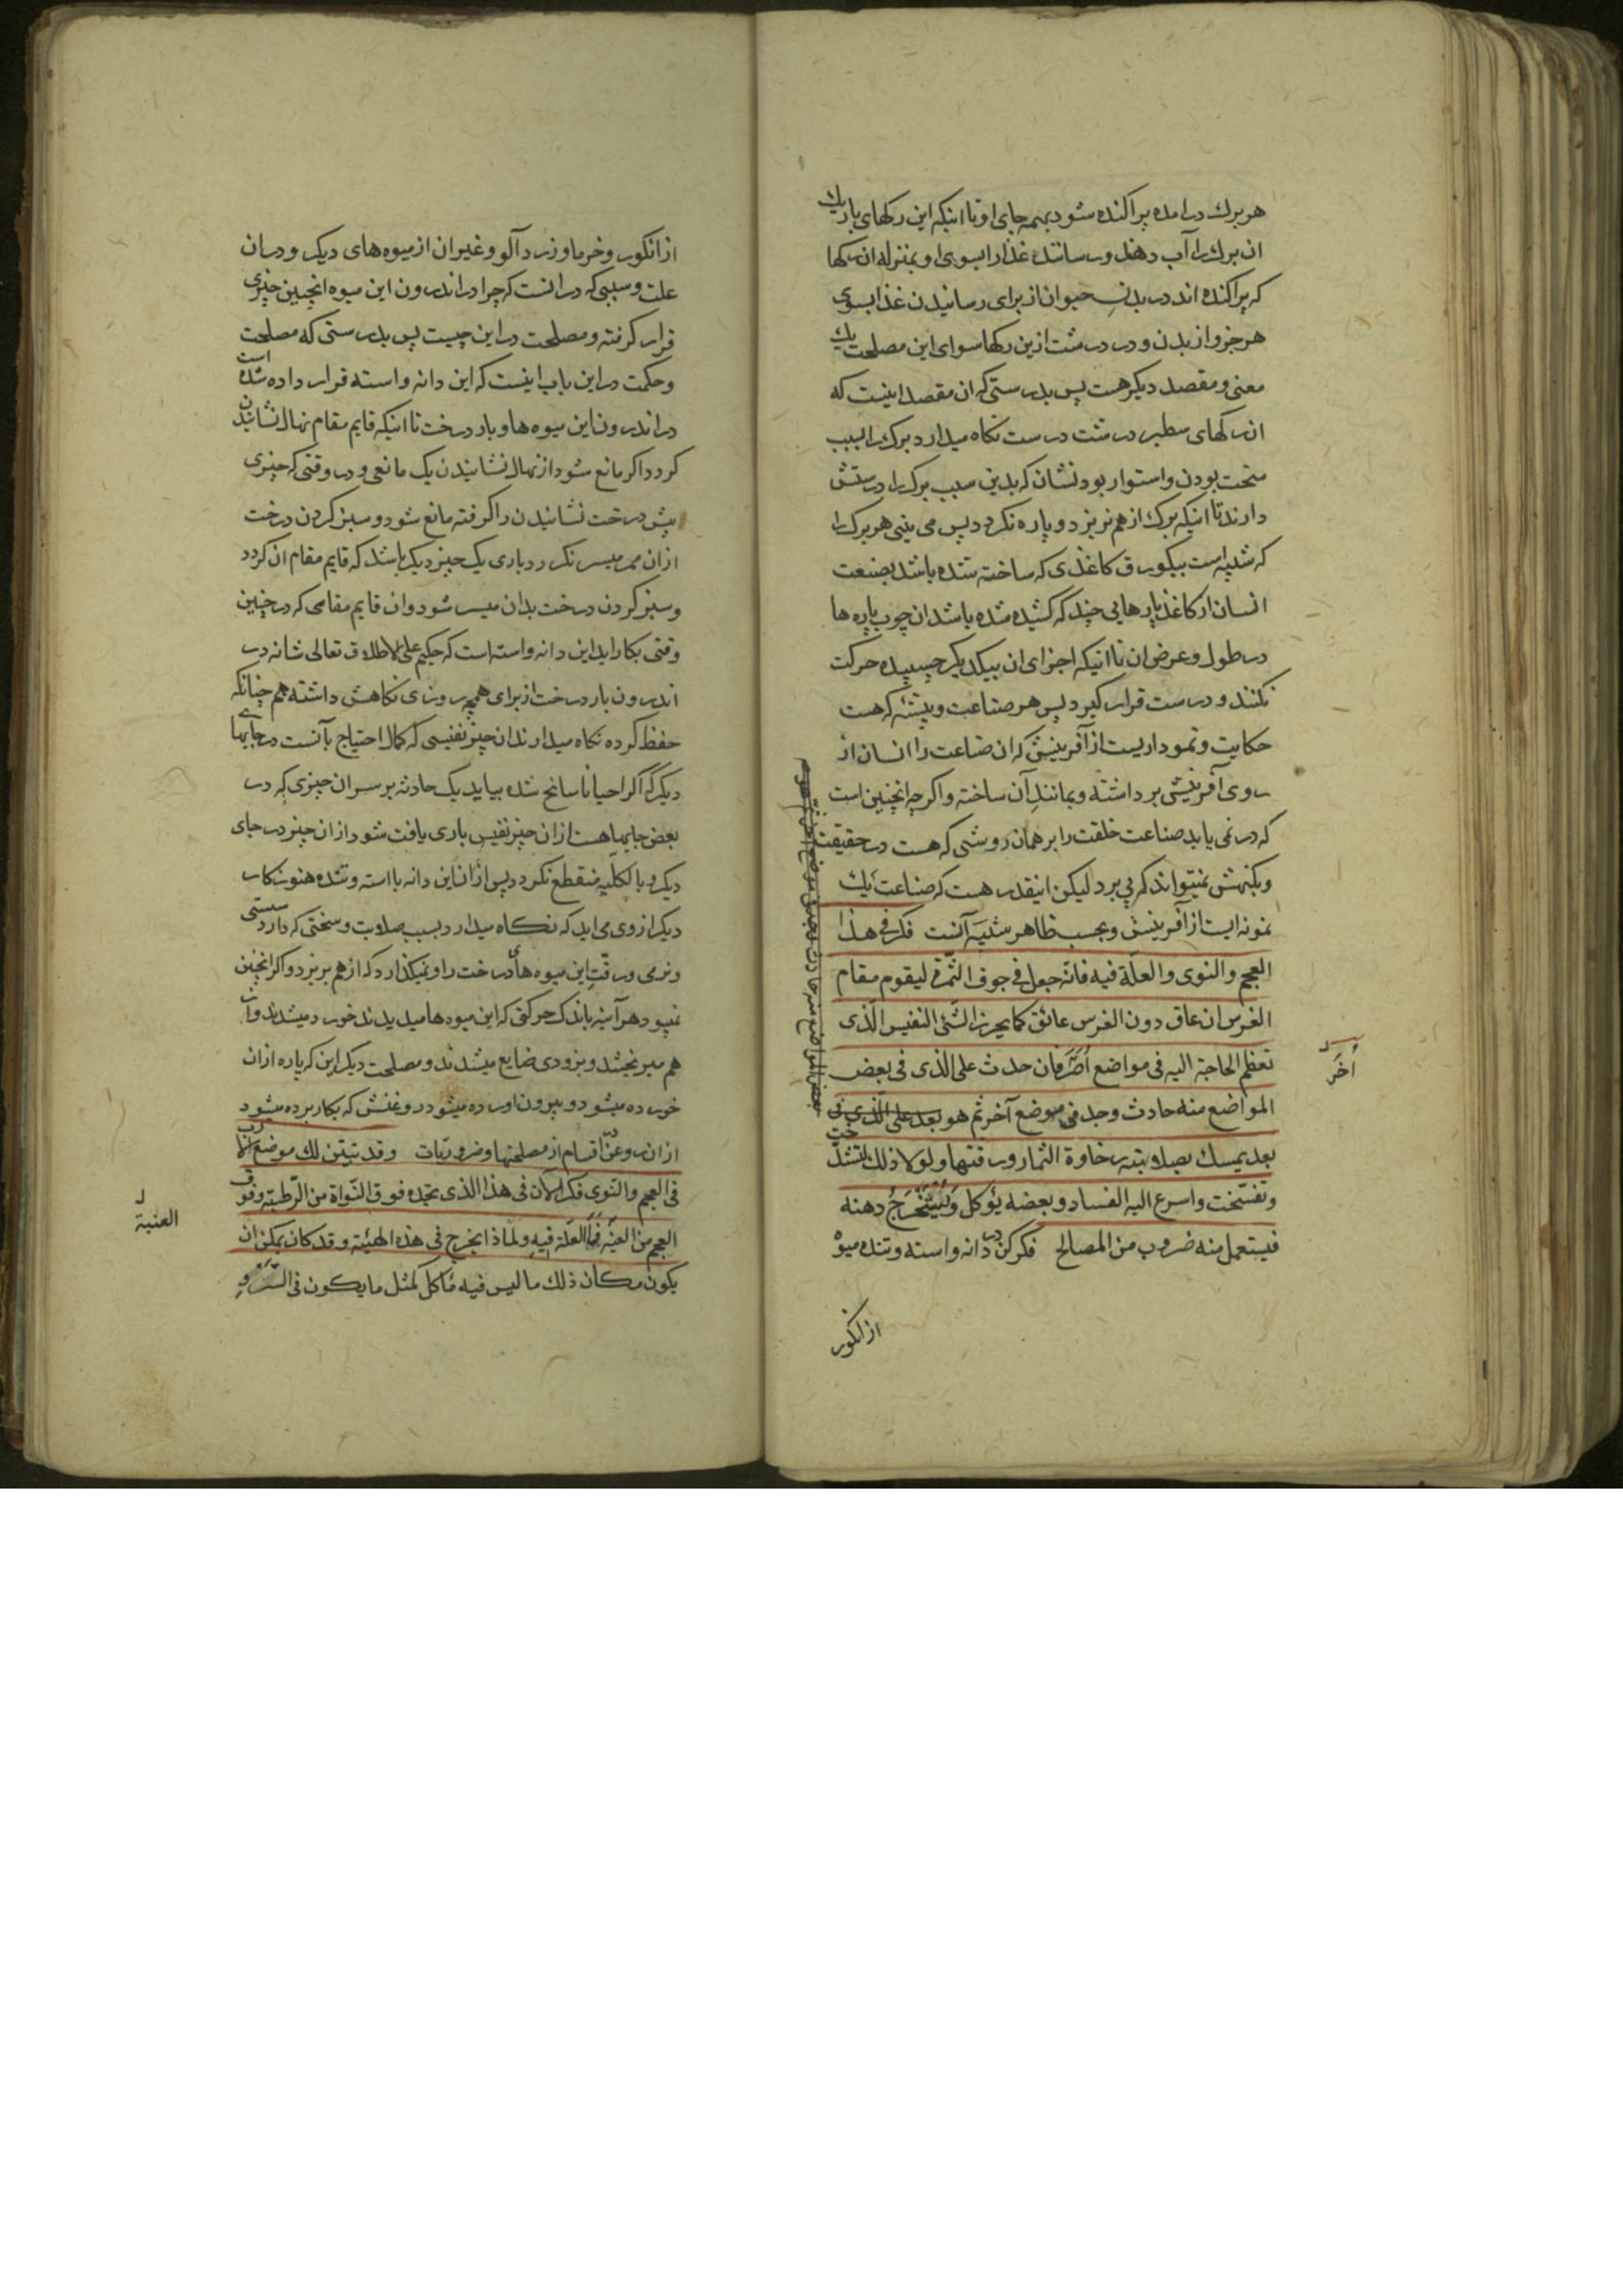 هر برك در امده پراكنده شود بهمه جاى او تا اينكه اين ركهاى باريك
ان برك را آب دهند و رسانند غذا را بسوى او بمنزله ان ركها
كه پراكنده اند در بدنِ حيوان از براى رسانيدن غذا بسوى
هر جزو از بدن و در درشت ازين ركها سواى اين مصلحت يك
معنى و مقصد ديكر هست پس بدرستى كه ان مقصد اينست كه
ان ركهاى سطبر درشت درست نكاه ميدارد برك را بسبب
سخت بودن و استوار بودنشان كه بدين سبب برك را درستش
دارند تا اينكه برك از هم نريزد و پاره نكردد پس مى بينى هر برك را
كه شبيه است بيكورق كاغذى كه ساخته شده باشد بصنعت
انسان از كاغذ پارهايى چند كه كشيده شده باشد ان چوب پاره ها
در طول و عرض ان تا اينكه اجزاى ان بيكديكر چسپيده حركت
نكنند و درست قرار كيرد پس هر صناعت و پيشه كه هست
حكايت و نموداريست از آفرينش كه ان صناعت را انسان از
روى آفرينش برداشته و بمانندِ آن ساخته و اكر چه انچنين است
كه در نمى يابد صناعت خلقت را بر همان روشى كه هست در حقيقت
و بكنهش نميتواند كه پى برد ليكن اينقدر هست كه صناعت يك
نمونه ايست از آفرينش و بحسب ظاهر شبيه آنست فكر فى هذا
العجم و النوى و العلّة فيه فانّه جعل فى جوف الثّمرة ليقوم مقام
الغرس ان عاق دون الغرس عائق كما يحرز الشّئ النفيس الّذى
تعظم الحاجة اليه فى مواضع أُخَر فان حدث على الذى فى بعض
أُخَر
المواضع منه حادث وجد فى موضع آخر ثم هو بعد على الّذى فى
بعد يمسك بصلابته رخاوة الثمار و رقتها و لولا ذلك لتشدّخت
و تفسّخت و اسرع اليه الفساد و بعضه يؤكل وَيُسْتَخْرَجُ دهنه
فيستعمل منه ضروب من المصالح فكر كن در دانه و استه و تنده ميوهٔ
از انكور
از انكور و خرما و زرد آلو و غير ان از ميوه هاى ديكر و در ان
علت و سببى كه در انست كه چرا در اندرون اين ميوه انچنين چيزى
قرار كرفته و مصلحت در اين چيست پس بدرستى كه مصلحت
و حكمت در اين باب اينست كه اين دانه و استه قرار داده شده است
در اندرون اين ميوه ها و بار درخت تا اينكه قايم مقام نهال نشانيدن
كردد اكر مانع شود از نهال نشانيدن يك مانعى و در وقتى كه چيزى
پيش درخت نشانيدن را كرفته مانع شود و سبز كردن درخت
از ان ممر ميسر نكردد بارى يك چيز ديكر باشد كه قايم مقام ان كردد
و سبز كردن درخت بدان ميسر شود و ان قايم مقامى كه در چنين
وقتى بكار ايد اين دانه و استه است كه حكيم على الاطلاق تعالى شانه در
اندرون بار درخت از براى همچه روزى نكاهش داشته هم چنانكه
حفظ كرده نكاه ميدارند ان چيز نفيسى كه كمال احتياج بآنست در جايهاى
ديكر كه اكر احيانا سانح شده بيايد يك حادثه بر سر ان چيزى كه در
بعض جايها هست از ان چيز نفيس بارى يافت شود از ان چيز در جاى
ديكر و بالكليه منقطع نكردد پس از ان اين دانه با استه و تنده هنوز كار
ديكر از وى مى ايد كه نكاه ميدارد بسبب صلابت و سختى كه دارد سستى
و نرمى و رقّتِ اين ميوه هاى درخت را و نميكذارد كه از هم بريزد و اكر انچنين
نميبود هر آينه باندك حركتى كه اين ميوه ها ميديدند خورد ميشدند و از
هم ميريختند و بزودى ضايع ميشدند و مصلحت ديكر اين كه پاره از ان
خورده ميشود و بيرون اورده ميشود روغنش كه بكار برده ميشود
از ان روغن در اقسام از مصلحتها و ضروريّات و قد تبيّن لك موضع الارب
فى العجم و النّوى فكّر الآن فى هذا الذى تجده فوق النّواة من الرّطبة و فوق
العنبة
العجم من العنبة فما العلّة فيه و لماذا يخرج فى هذه الهيئة و قد كان يمكن ان
يكون مكان ذلك ما ليس فيه مأكل كمثل ما يكون فى السّرو